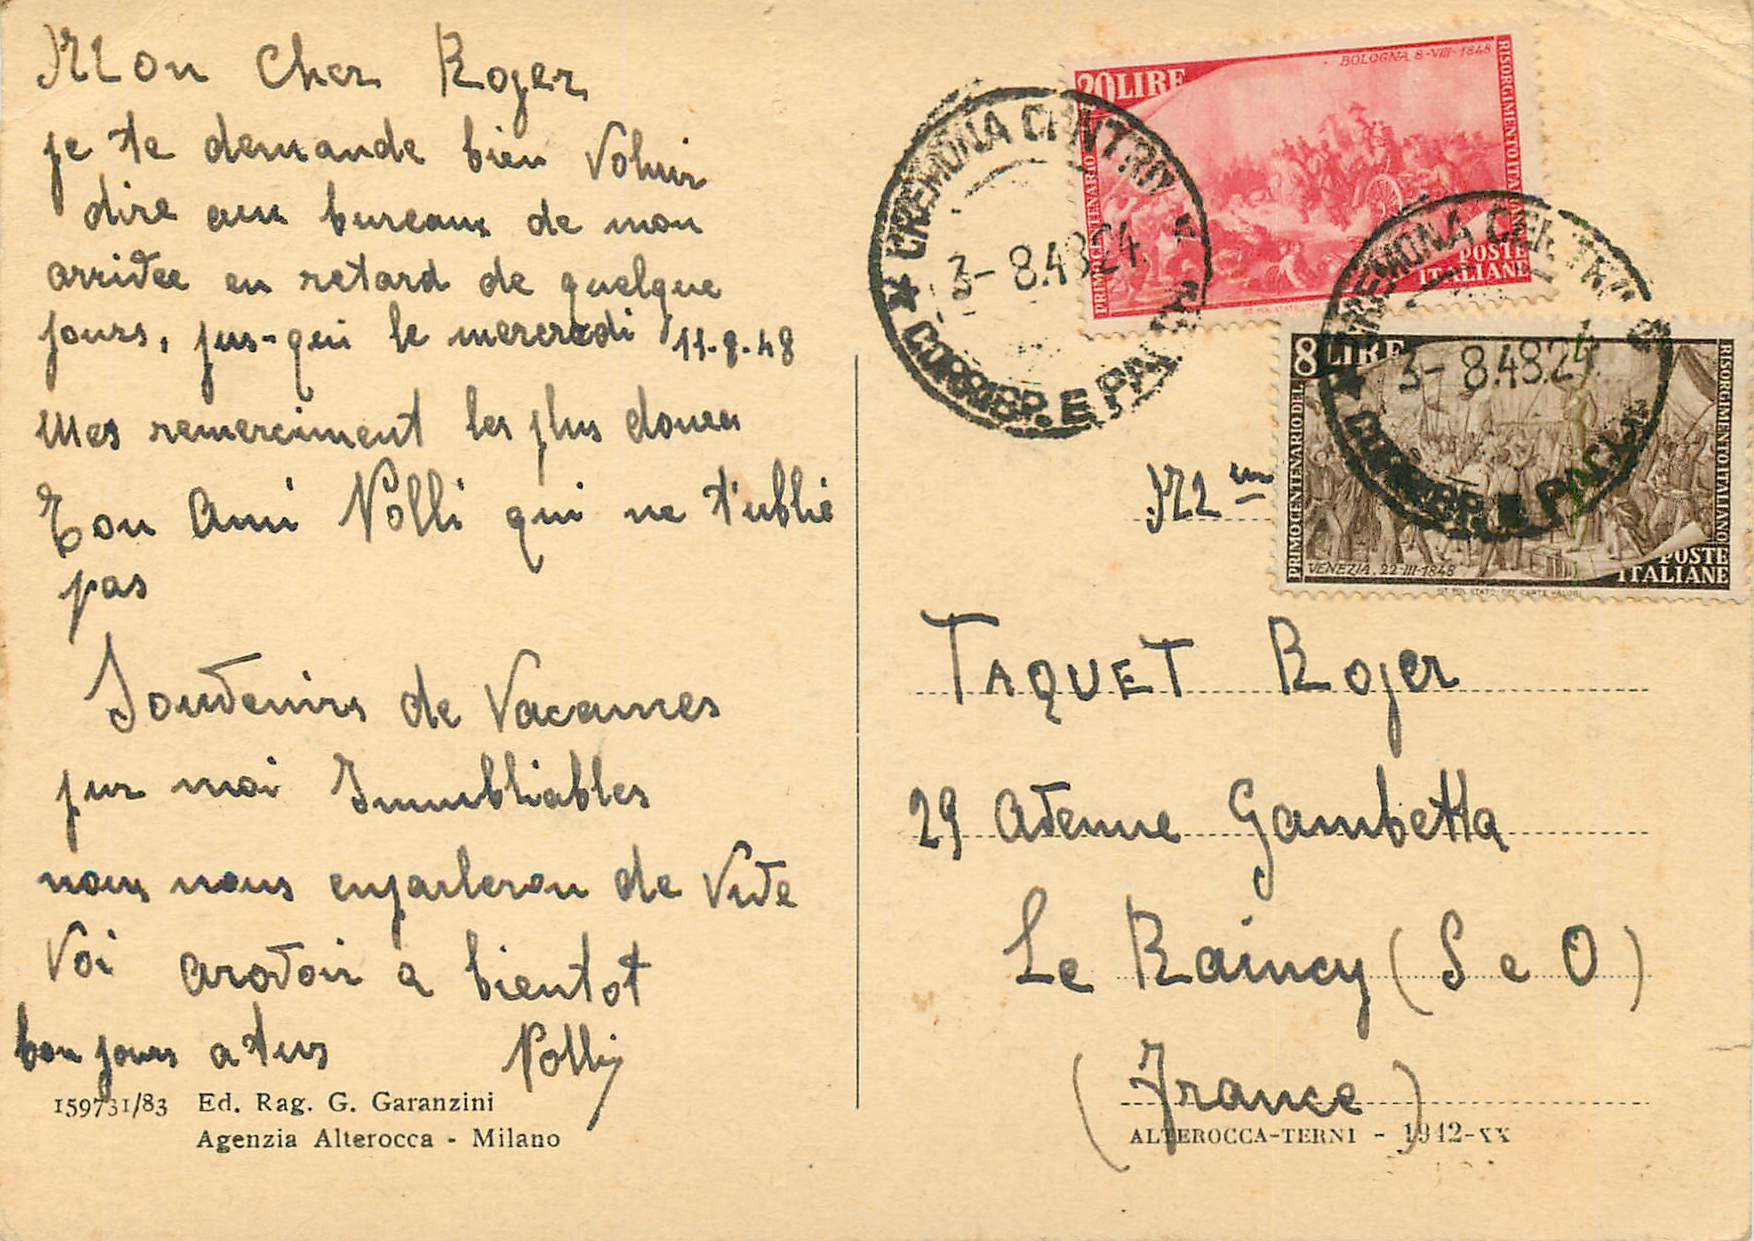 Mon Cher Rojer
je te demande bien Voluir
dire au bureaux de mon
arrivée en retard de quelque
jours, jus-qui le mercredi 11-8-48
Mes remerciment les plus douces
Ton Ami Nolli qui ne t'ublie
pas
Souvenirs de Vacannes
pur moi Innubliables
nous nous enparleron de Vive
Voi arovoir a bientot
bon jours a tus Nolli
159731/83 Ed. Rag. G. Garanzini
Agenzia Alterocca - Milano
20 LIRE
BOLOGNA 8-VIII-1848
PRIMO CENTENARIO DEL
RISORGIMENTO ITALIANO
POSTE
ITALIANE
CREMONA CENTRO
3-8.48.24
CORRISP. E PACCHI
8 LIRE
PRIMO CENTENARIO DEL
RISORGIMENTO ITALIANO
VENEZIA, 22-III-1848
POSTE
ITALIANE
CREMONA CENTRO
3-8.48.24
CORRISP. E PACCHI
Mur
TAQUET Rojer
29 Avenue Gambetta
Le Raincy (S e O)
(France)
ALTEROCCA-TERNI - 1942-XX